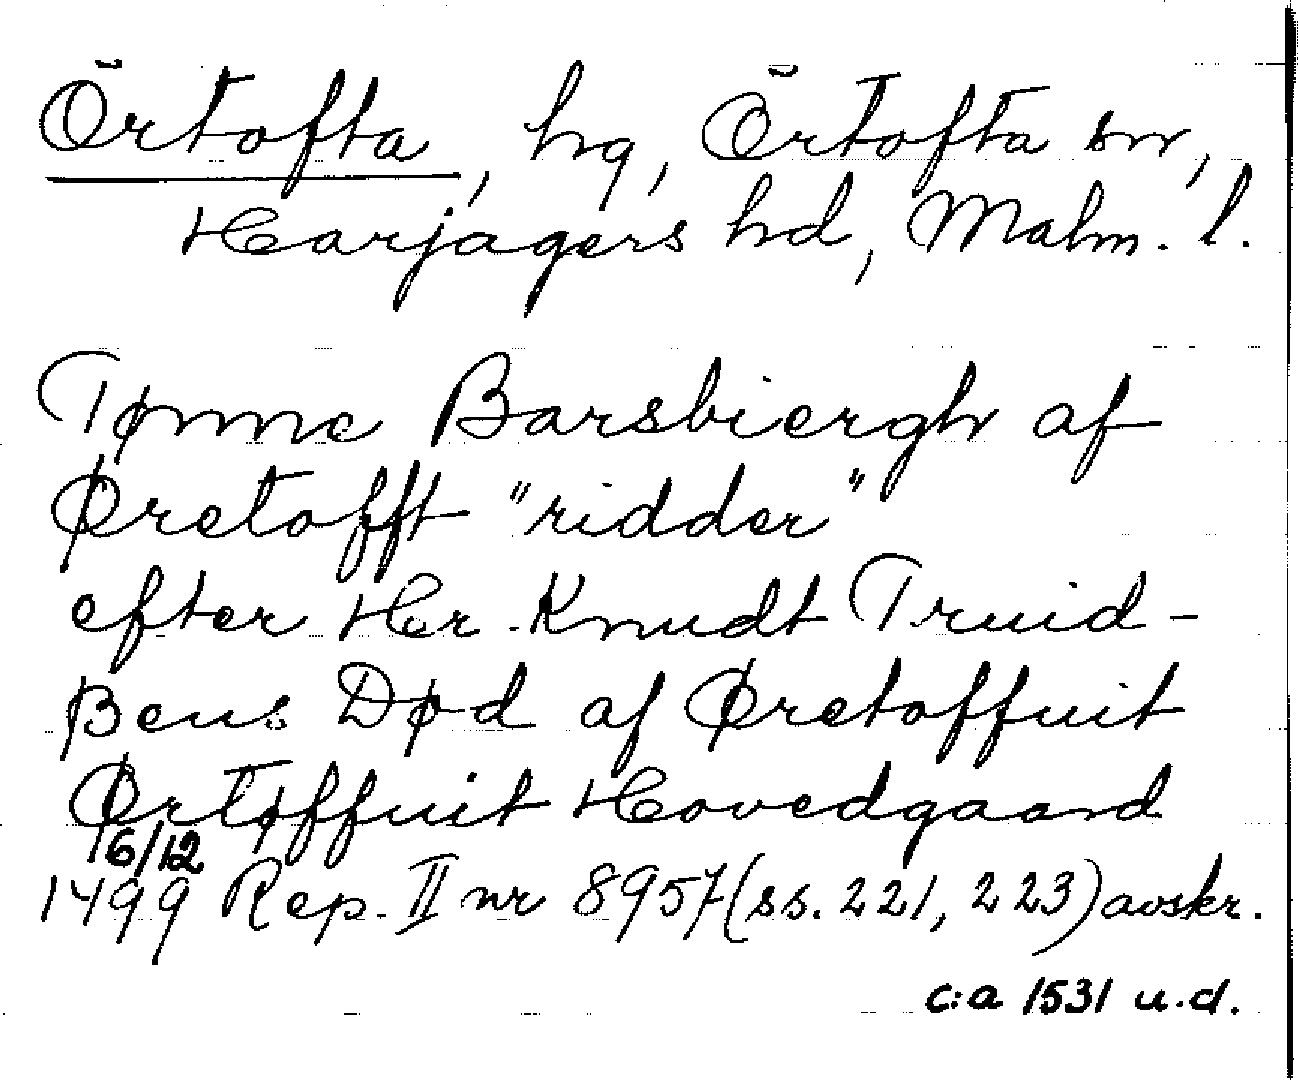 Örtofta, hg, Örtofta sn,
Harjagers hd, Malm. l.
Tønne Barsbiergh af
Øretofft "ridder"
efter Her Knudt Truid-
Bens Død af Øretoffuit
Ørtoffuit Hovedgaard
16/12
1499 Rep. II nr 8957 (ss. 221, 223) avskr.
c:a 1531 u.d.